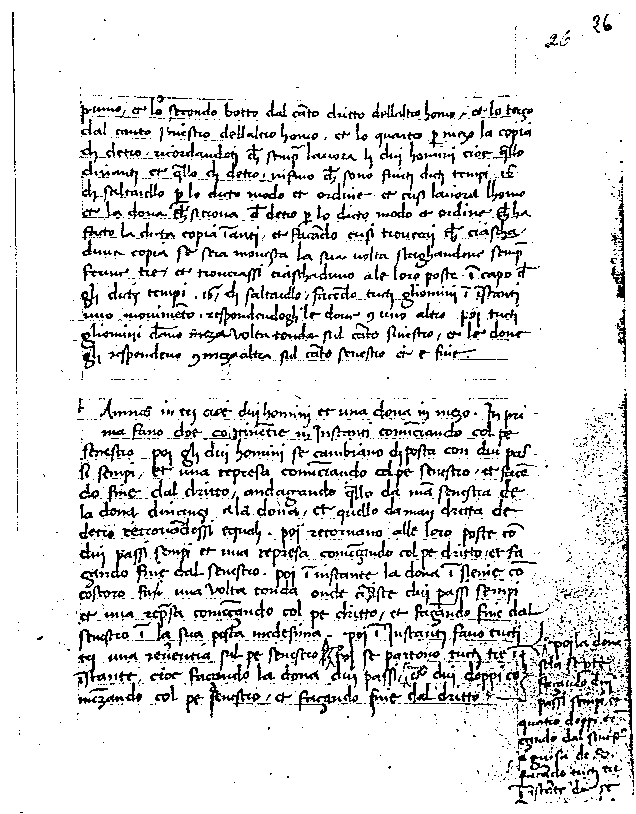 26 26
primo, et lo secondo botto dal cãto dritto dellaltro homo, et lo terzo
dal canto sinestro dellaltro homo. et lo quarto p mezo la copia
di detro. ricordandoti ch semp lavora li dui homini cioe q̃llo
dinanci et q̃llo di detro, infino ch sono finiti dicti tempi. 16.
di saltarello p lo dicto modo et ordine et cusi lavora lhomo
et la dona ch si trova d detro p lo dicto modo et ordine ch ha
facto la dicta copia ĩanti. et facẽdo cusi trovarai ch ciascha
duna copia se sera movesta la sua volta
semp
tre. et trovarassi ciaschaduno a le loro poste ĩ capo d
gli dicti tempi .16. di saltarello, facẽdo tucti gliomini ĩ ĩstanti
uno movimẽto. respondendogli le done 9 uno altro. poi tucti
gliomini dãno meza volta tonda sul cãto sinestro, et le done
gli respondeno 9 meza altra sul cãto senestro et e fine
Amoroso in tri cioe dui homini et una dona in mezo. In pri
ma fano doe continẽtie in Instanti comĩciando col pe
senestro. poi gli dui homini se cambiano di posta con dui pas
si sempi, et una represa comĩciando col pe senestro, et facẽ
do fine dal dritto, andagando q̃llo da mã senestra de
la dona dinanci a la dona, et quello da man dritta de
detro retrovãdossi equali. poi retornano alle loro poste cõ
dui passi sempi et una represa comĩzando col pe dritto, et fa
gando fine dal senestro. poi ĩ instante la dona ĩ sieme cõ
costoro fano una volta tonda
dui passi sempi
et una rep̃sa comĩzando col pe dritto, et fagando fine dal
senestro ĩ la sua posta medesima. poi ĩ Instanti fano tucti
tri una reverentia sul pe senestro. poi se partono tucti tre ĩ
ĩstante, cioe facendo la dona dui passi, et dui doppi co
mẽzando col pe senestro, et facgando fine dal dritto.
poi la dona
facendo dui
passi sempi, et
quatro doppi
dal
a guisa de
facendo tucti tre